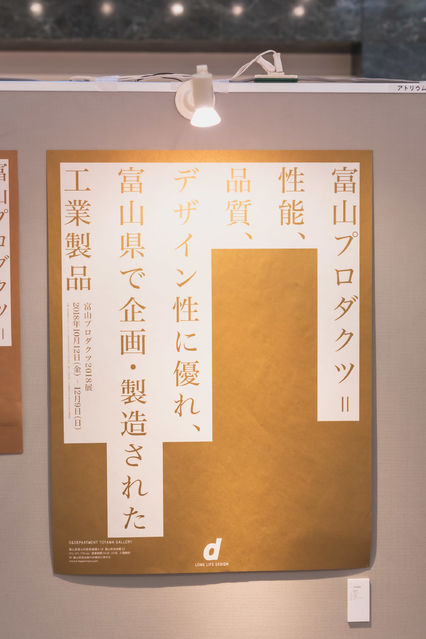 アトリウム
富山プロダクツ＝
性能、
品質、
デザイン性に優れ、
富山県で企画・製造された
工業製品
富山プロダクツ2018展
2018年10月12日(金) - 12月9日(日)
D&DEPARTMENT TOYAMA GALLERY
d
LONG LIFE DESIGN
富山プロダクツ＝